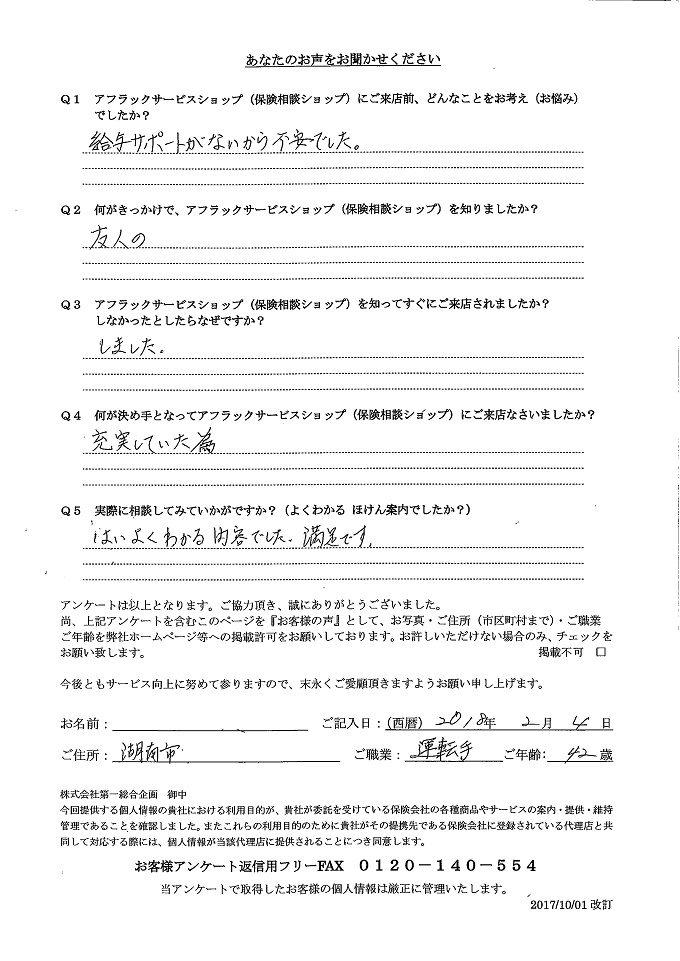 あなたのお声をお聞かせください
Q1 アフラックサービスショップ(保険相談ショップ)にご来店前、どんなことをお考え(お悩み)
でしたか?
給与サポートがないから不安でした。
Q2 何がきっかけで、アフラックサービスショップ(保険相談ショップ)を知りましたか?
友人の
Q3 アフラックサービスショップ(保険相談ショップ)を知ってすぐにご来店されましたか?
しなかったとしたらなぜですか?
しました。
Q4 何が決め手となってアフラックサービスショップ(保険相談ショップ)にご来店なさいましたか?
充実していた為
Q5 実際に相談してみていかがですか?(よくわかる ほけん案内でしたか?)
はいよくわかる内容でした。満足です。
アンケートは以上となります。ご協力頂き、誠にありがとうございました。
尚、上記アンケートを含むこのページを『お客様の声』として、お写真・ご住所(市区町村まで)・ご職業
ご年齢を弊社ホームページ等への掲載許可をお願いしております。お許しいただけない場合のみ、チェックを
お願い致します。 掲載不可 □
今後ともサービス向上に努めて参りますので、末永くご愛顧頂きますようお願い申し上げます。
お名前: ご記入日:(西暦)2018年 2月 4日
ご住所:湖南市 ご職業:運転手 ご年齢:42歳
株式会社第一総合企画 御中
今回提供する個人情報の貴社における利用目的が、貴社が委託を受けている保険会社の各種商品やサービスの案内・提供・維持
管理であることを確認しました。またこれらの利用目的のために貴社がその提携先である保険会社に登録されている代理店と共
同して対応する際には、個人情報が当該代理店に提供されることにつき同意します。
お客様アンケート返信用フリーFAX 0120-140-554
当アンケートで取得したお客様の個人情報は厳正に管理いたします。
2017/10/01 改訂